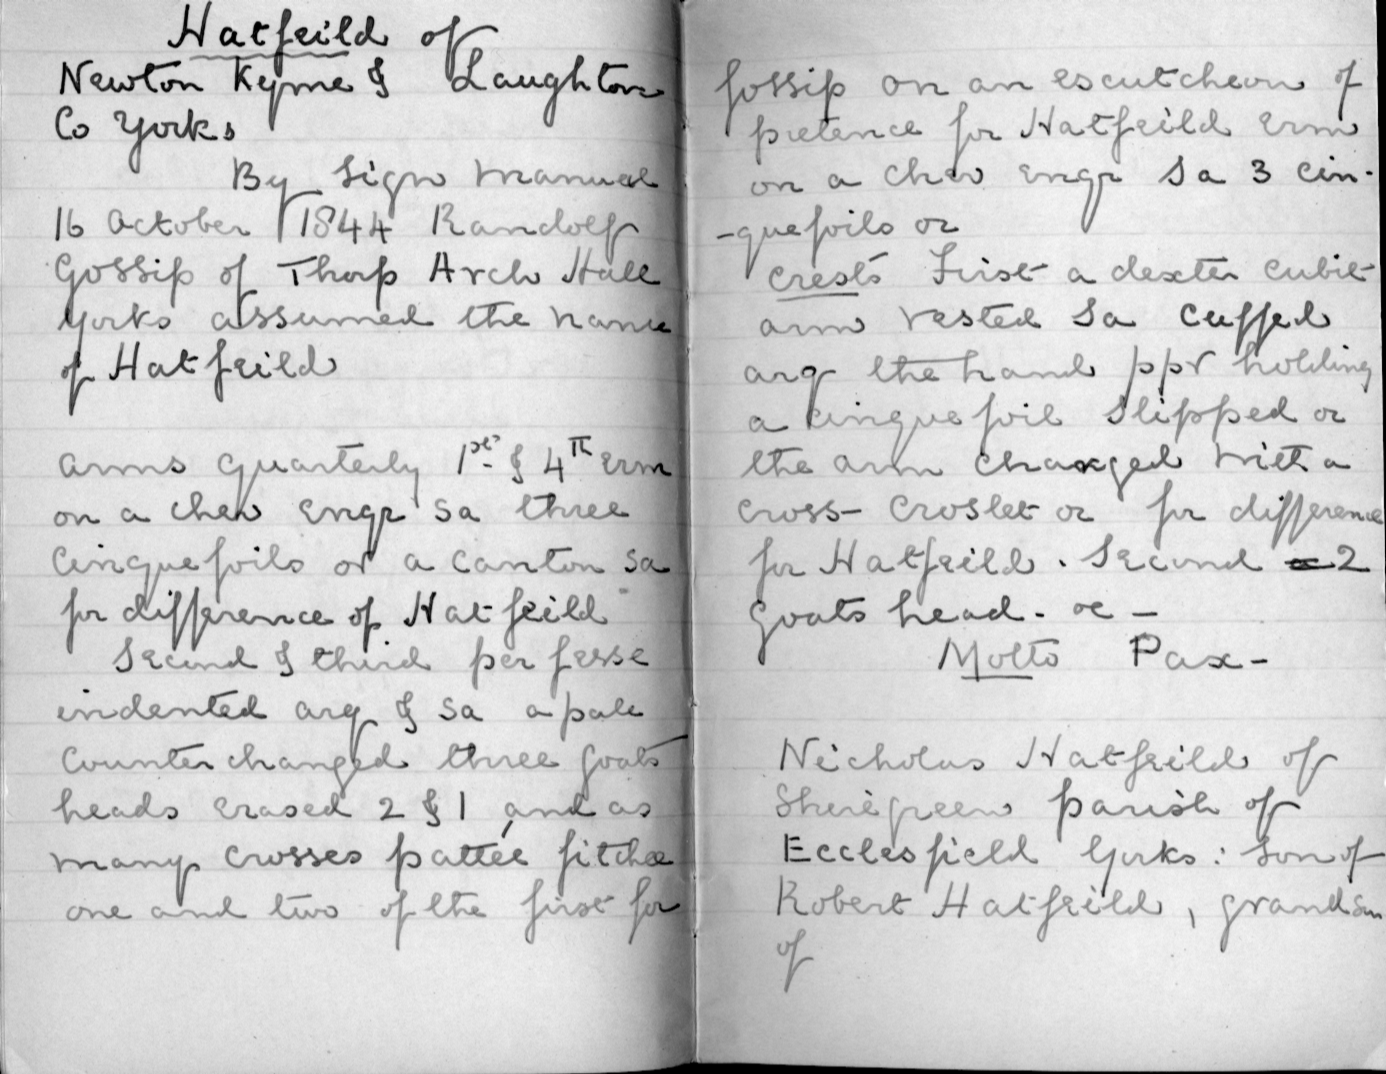 Hatfeild of
Newton Kyme & Laughton
Co Yorks
By Sign Manual
16 October 1844 Randolf
Gossip of Thorp Arch Hall
Yorks assumed the name
of Hatfeild
Arms Quarterly 1st & 4th Erm
on a chev Engr Sa three
Cinquefoils or a canton Sa
for difference of Hatfeild
Second & third per fesse
indented arg & Sa a pale
Counterchanged three goats
heads erased 2 & 1, and as
many crosses pattée fitchee
one and two of the first for
Gossip on an escutcheon of
pretence for Hatfeild Erm
on a chev engr Sa 3 cin-
-quefoils or
Crests First a dexter cubit
arm vested Sa cuffed
arg the hand ppr holding
a cinquefoil slipped or
the arm charged with a
cross-croslet or for difference
for Hatfeild. Second 2
Goats head. or -
Motto Pax -
Nicholas Hatfeild of
Shiregreen parish of
Ecclesfield Yorks: Son of
Robert Hatfeild, grandson
of